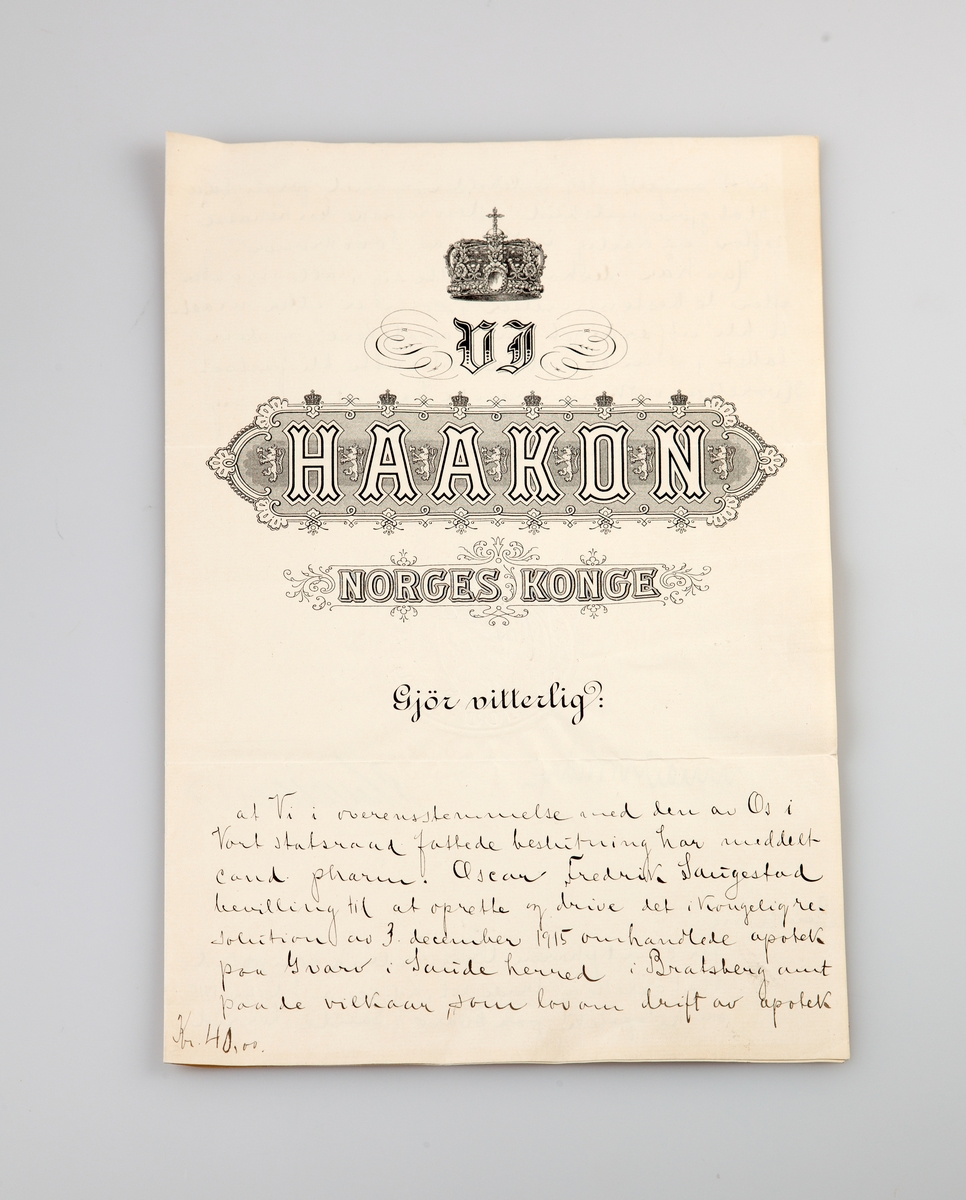 VI
HAAKON
NORGES KONGE
Gjör vitterlig:
at Vi i overensstemmelse med den av Os i
Vort statsraad fattede beslutning har meddelt
cand. pharm. Oscar Fredrik Saugestad
bevilling til at oprette og drive det i kongelig re-
solution av 3. december 1915 omhandlede apotek
paa Gvarv i Saude herred i Bratsberg amt
paa de vilkaar, som lov om drift av apotek
Kr. 40,00.